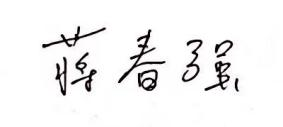 蒋春强